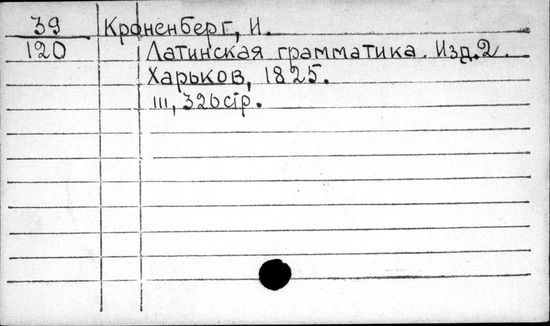 39 Кроненберг, И.
120 Латинская грамматика. Изд.2.
Харьков, 1825.
III, 326стр.